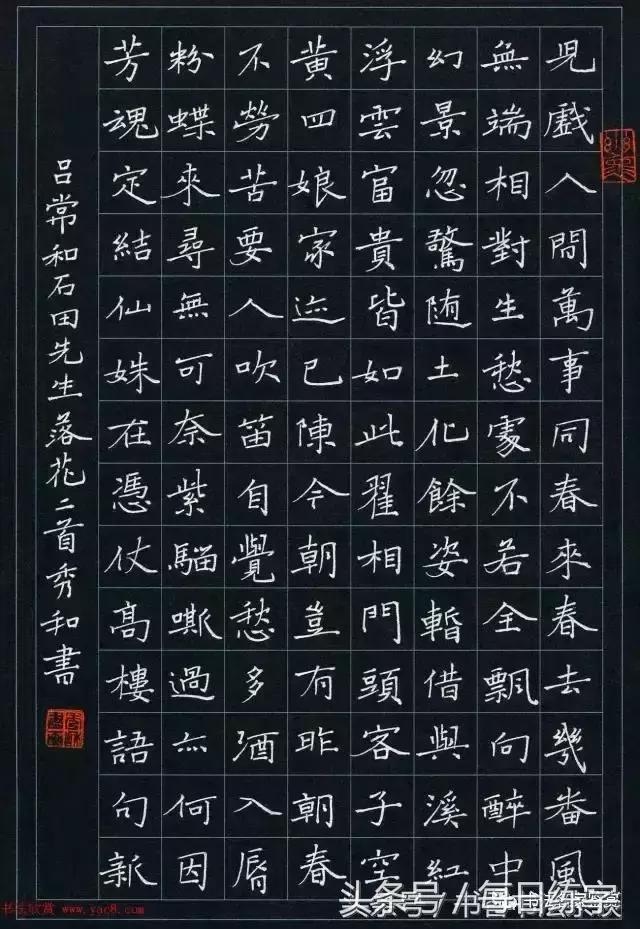 兒戲人間萬事同春來春去幾番風
無端相對生愁處不若全飄向醉中
幻景忽驚随土化餘姿暫借與溪紅
浮雲富貴皆如此翟相門頭客子空
黄四娘家迹已陳今朝豈有昨朝春
不勞苦要人吹笛自覺愁多酒入脣
粉蝶來尋無可奈紫騮嘶過亦何因
芳魂定結仙姝在憑仗高樓語句新
吕常和石田先生落花二首秀和書
书法欣赏 www.yac8.com
头条号/每日练字